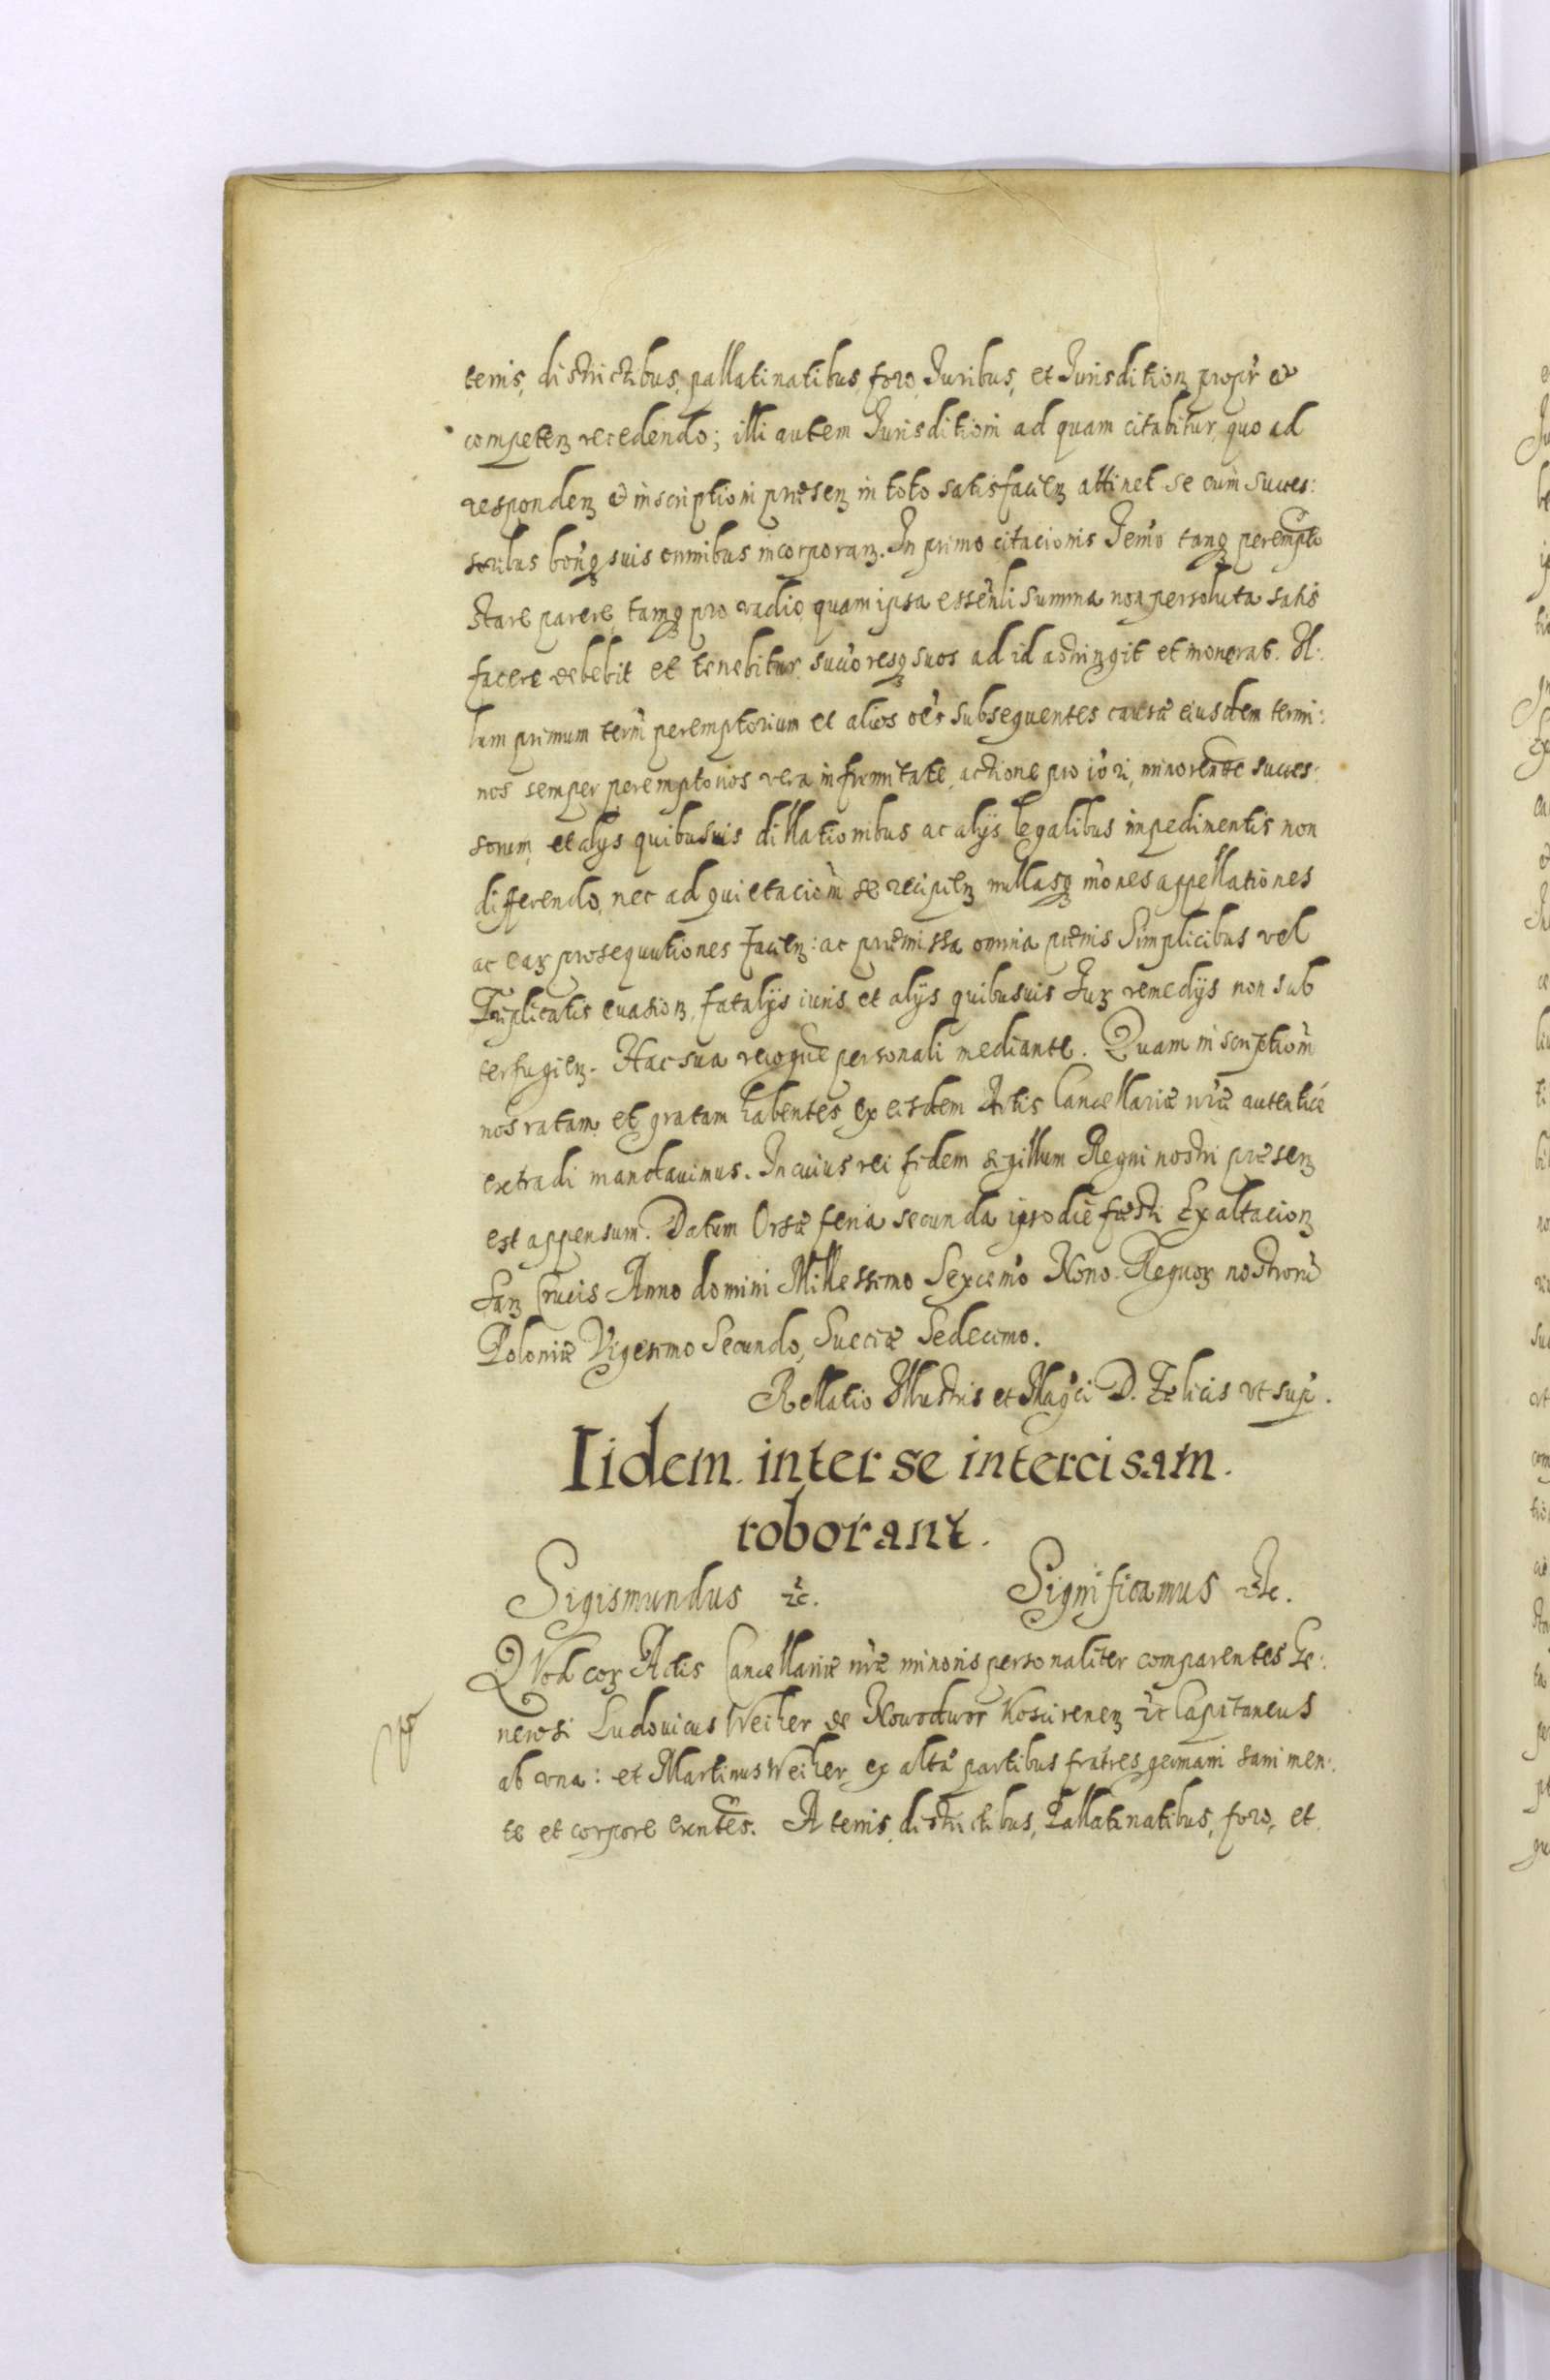 terris, districtibus, pallatinatibus, foro, Juribus, et Jurisdition propr et
competen recedendo; illi autem Jurisditioni ad quam citabitur, quo ad
responden et inscriptioni præsen in toto satisfacien attinet se cum succes:
soribus bonq suis omnibus incorporan. In primo citacionis Termo tanq perempto
stare parere, tamq pro vadio, quam ipsa essenli summa non persoluta satis
facere debebit et tenebitur, succoresq suos ad id astringit et inonerat. Il:
lum primum term peremptorium et alios oes subsequentes causæ eiusdem termi:
nos semper peremptorios vera infirmitate, actione pro iori, minorennte succes:
sorum, et alys quibusuis dillationibus ac alijs legalibus impedimentis non
differendo, nec ad quietaciom se recipien nullasq mones appellationes
ac ear prosequutiones facien: ac præmissa omnia pænis Simplicibus vel
Triplicatis euasion, fatalijs iuris, et alijs quibusuis Jur remedijs non sub
terfugien. Hac sua recogne personali mediante. Quam inscriptiom
nos ratam et gratam habentes ex eisdem Actis Cancellariæ nræ autenticé
extradi mandauimus. In cuius rei fidem sigillum Regni nostri præsen
est appensum. Datum Orsæ feria secunda ipso die fæsti Exaltacion
San Crucis Anno domini Millessimo Sexcemo Nono. Regnor nostroru
Poloniæ Vigesimo Secundo, Sueciæ Sedecimo.
Rellatio Illustris et Magci D. Felicis vt sup.
Iidem inter se intercisam
roborant.
Sigismundus etc. Significamus etc.
QVod cor Actis Cancellariæ nræ minoris personaliter comparentes Ge:
nerosi Ludouicus Weiher de Nowodwor etc Capitaneus
ab vna: et Martinus Weiher ex alta partibus fratres germani sani men:
te et corpore exntes. A terris, districtibus, Pallatinatibus, foro, et